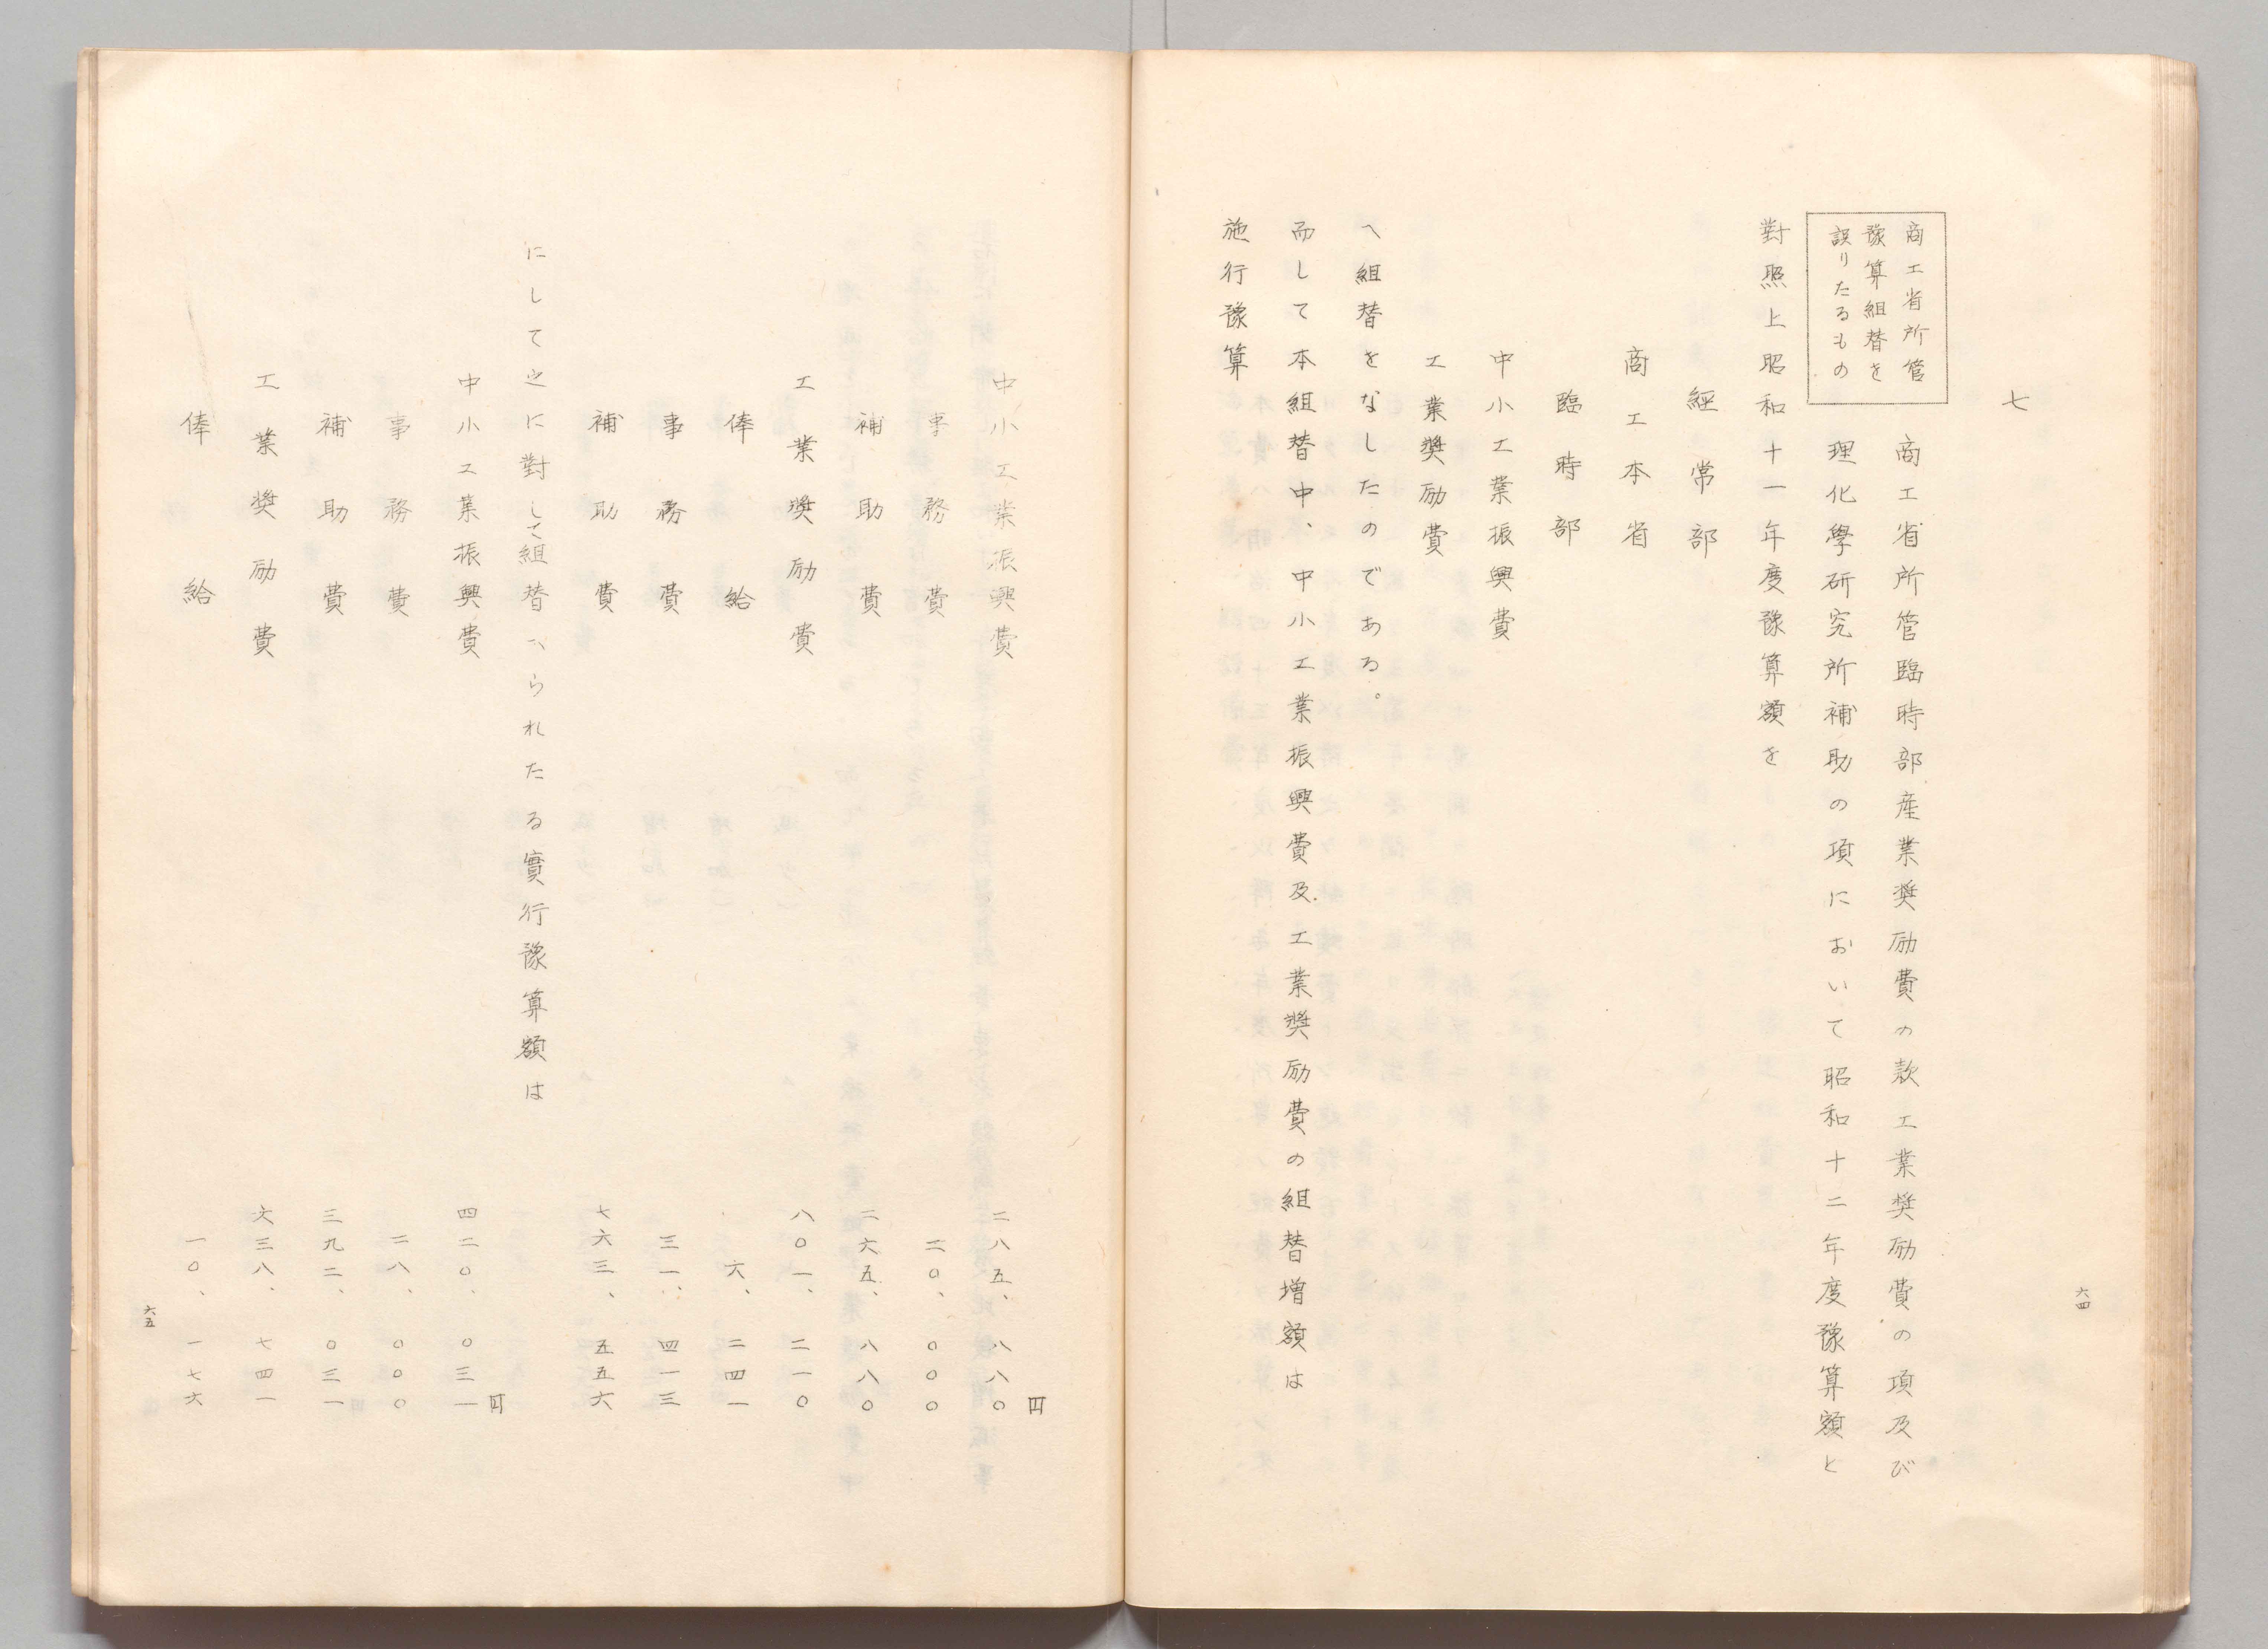 七
商工省所管
豫算組替を
誤りたるもの
商工省所管臨時部産業奬励費の款工業奬励費の項及び
理化學研究所補助の項において昭和十二年度豫算額と
對照上昭和十一年度豫算額を
經常部
商工本省
臨時部
中小工業振興費
工業奬励費
へ組替をなしたのである。
而して本組替中、中小工業振興費及工業奬励費の組替増額は
施行豫算
六四
円
中小工業振興費 二八五、八八〇
事務費 二〇、〇〇〇
補助費 二六五、八八〇
工業奬励費 八〇一、二一〇
俸給 六、二四一
事務費 三一、四一三
補助費 七六三、五五六
にして之に對して組替へられたる實行豫算額は
円
中小工業振興費 四二〇、〇三一
事務費 二八、〇〇〇
補助費 三九二、〇三一
工業奬励費 六三八、七四一
俸給 一〇、一七六
六五